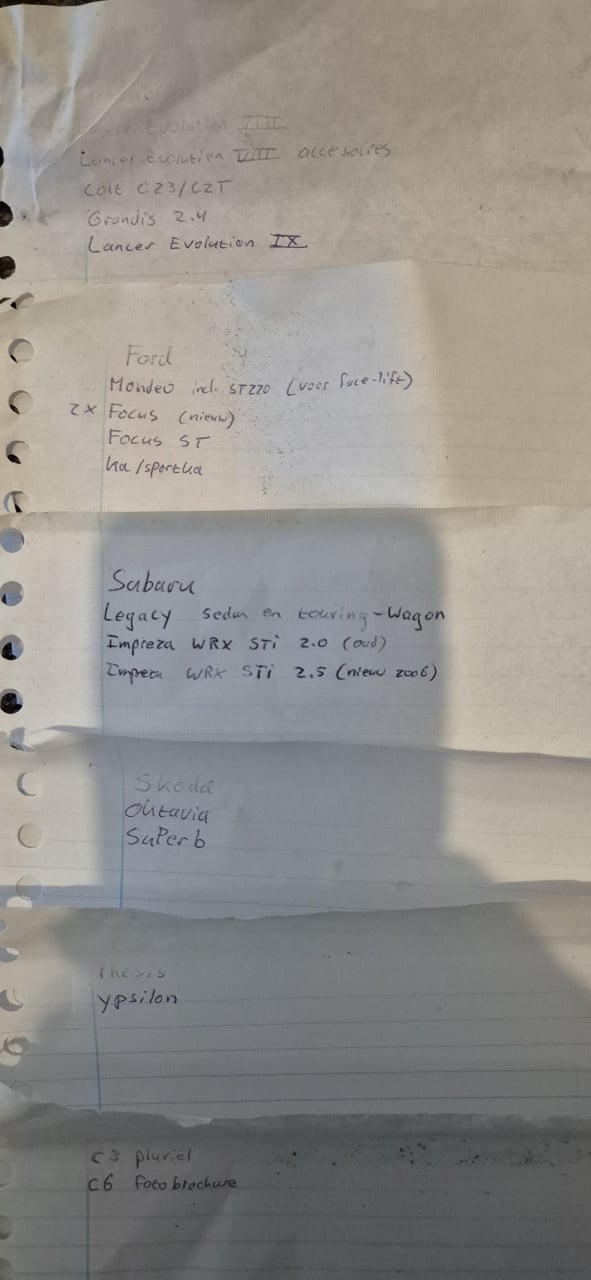 Evolution VIII
Lancer Evolution VIII accesoires
Colt CZ3/CZT
Grandis 2.4
Lancer Evolution IX
Ford
Mondeo incl. ST220 (voor face-lift)
2x Focus (nieuw)
Focus ST
Ka/sportka
Subaru
Legacy Sedan en touring-Wagon
Impreza WRX STi 2.0 (oud)
Impreza WRX STi 2.5 (nieuw 2006)
Skoda
Oktavia
SuPerb
Thesis
Ypsilon
C3 pluriel
C6 fotobrochure